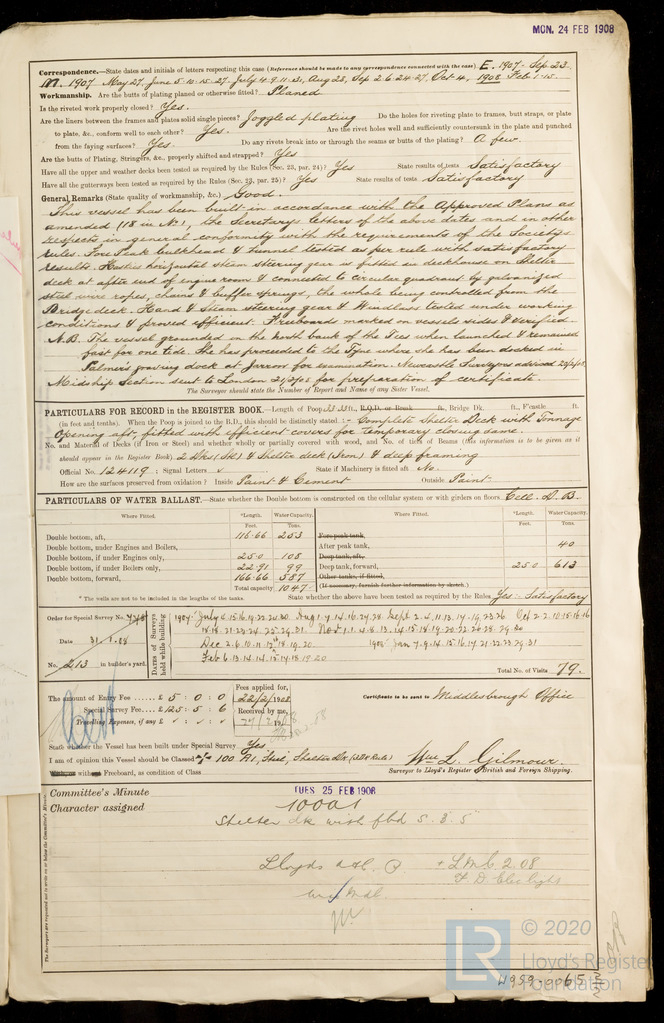 MON. 24 FEB 1908
Correspondence.—State dates and initials of letters respecting this case (Reference should be made to any correspondence connected with the case) E. 1907- Sep 23
M. 1907 May 27, June 5.10.15.27. July 4.9.11.31, Aug 23, Sep 2.6.24.27, Oct 4, 1908 Feb 1.15.
Workmanship. Are the butts of plating planed or otherwise fitted? Planed
Is the riveted work properly closed? Yes.
Are the liners between the frames and plates solid single pieces? Joggled plating Do the holes for riveting plate to frames, butt straps, or plate
to plate, &c., conform well to each other? Yes. Are the rivet holes well and sufficiently countersunk in the plate and punched
from the faying surfaces? Yes Do any rivets break into or through the seams or butts of the plating? A few.
Are the butts of Plating, Stringers, &c., properly shifted and strapped? Yes
Have all the upper and weather decks been tested as required by the Rules (Sec. 23, par. 24)? Yes State results of tests Satisfactory
Have all the gutterways been tested as required by the Rules (Sec. 23, par. 25)? Yes State results of tests Satisfactory
General Remarks (State quality of workmanship, &c.) Good.
This vessel has been built in accordance with the Approved Plans as
amended (18 in No), the Secretarys letters of the above dates and in other
respects in general conformity with the requirements of the Society's
rules. Fore Peak bulkhead & tunnel tested as per rule with satisfactory
results. Hasties horizontal steam steering gear is fitted in deckhouse on Shelter
deck at after end of engine room & connected to circular quadrant by galvanized
steel wire ropes, chains & buffer springs, the whole being controlled from the
Bridge deck. Hand & steam steering gear & Windlass tested under working
conditions & proved efficient. Freeboards marked on vessels sides & verified
N.B. The vessel grounded on the North bank of the Tees when launched & remained
fast for one tide. She has proceeded to the Tyne where she has been docked in
Palmers graving dock at Jarrow for examination. Newcastle Surveyors advised 20/2/08
Midship Section sent to London 21/2/08 for preparation of certificate.
The Surveyor should state the Number of Report and Name of any Sister Vessel.
PARTICULARS FOR RECORD in the REGISTER BOOK.—Length of Poop ft., R.Q.D. or Break ft., Bridge Dk. ft., F'castle ft.
(in feet and tenths). When the Poop is joined to the B.D., this should be distinctly stated :- Complete Shelter Deck with Tonnage
Opening aft, fitted with efficient covers for temporary closing same.
No. and Material of Decks (if Iron or Steel) and whether wholly or partially covered with wood, and No. of tiers of Beams (this information is to be given as it
should appear in the Register Book) 2 Dks (Stl) & Shelter deck (Iron) & deep framing
Official No. 124119 ; Signal Letters State if Machinery is fitted aft No.
How are the surfaces preserved from oxidation? Inside Paint & Cement Outside Paint.
PARTICULARS OF WATER BALLAST.—State whether the Double bottom is constructed on the cellular system or with girders on floors Cell. D. B.
Where Fitted. *Length. Feet. Water Capacity. Tons. Where Fitted. *Length. Feet. Water Capacity. Tons.
Double bottom, aft, 116.66 253 Fore peak tank,
Double bottom, under Engines and Boilers, After peak tank, 40
Double bottom, if under Engines only, 25.0 108 Deep tank, aft,
Double bottom, if under Boilers only, 22.91 99 Deep tank, forward, 25.0 613
Double bottom, forward, 166.66 587 Other tanks, if fitted,
Total capacity 1047 (If necessary, furnish further information by sketch)
* The wells are not to be included in the lengths of the tanks. State whether the above have been tested as required by the Rules Yes - Satisfactory
Order for Special Survey No.
Date 31.1.08
No. 213 in builder's yard.
DATES of Surveys held while building
Total No. of Visits 79.
The amount of Entry Fee £ 5 : 0 : 0
Special Survey Fee £ 125 : 5 : 6
Travelling Expenses, if any £
Fees applied for, 22/2/1908
Received by me,
Certificate to be sent to Middlesbrough Office
State whether the Vessel has been built under Special Survey Yes
I am of opinion this Vessel should be Classed 100 A1, Steel, Shelter Dk (3Dk Rule)
with Freeboard, as condition of Class
Wm L. Gilmour.
Surveyor to Lloyd's Register of British and Foreign Shipping.
Committee's Minute TUES 25 FEB 1908
Character assigned 100A1
Shelter dk with fbd 5. 3. 5
Lloyds A & C. P. + LMC 2.08
F D. Elec light
The Surveyors are requested not to write on or below the Committee's Minute.
LR
© 2020
Lloyd's Register
Foundation
W959-0065